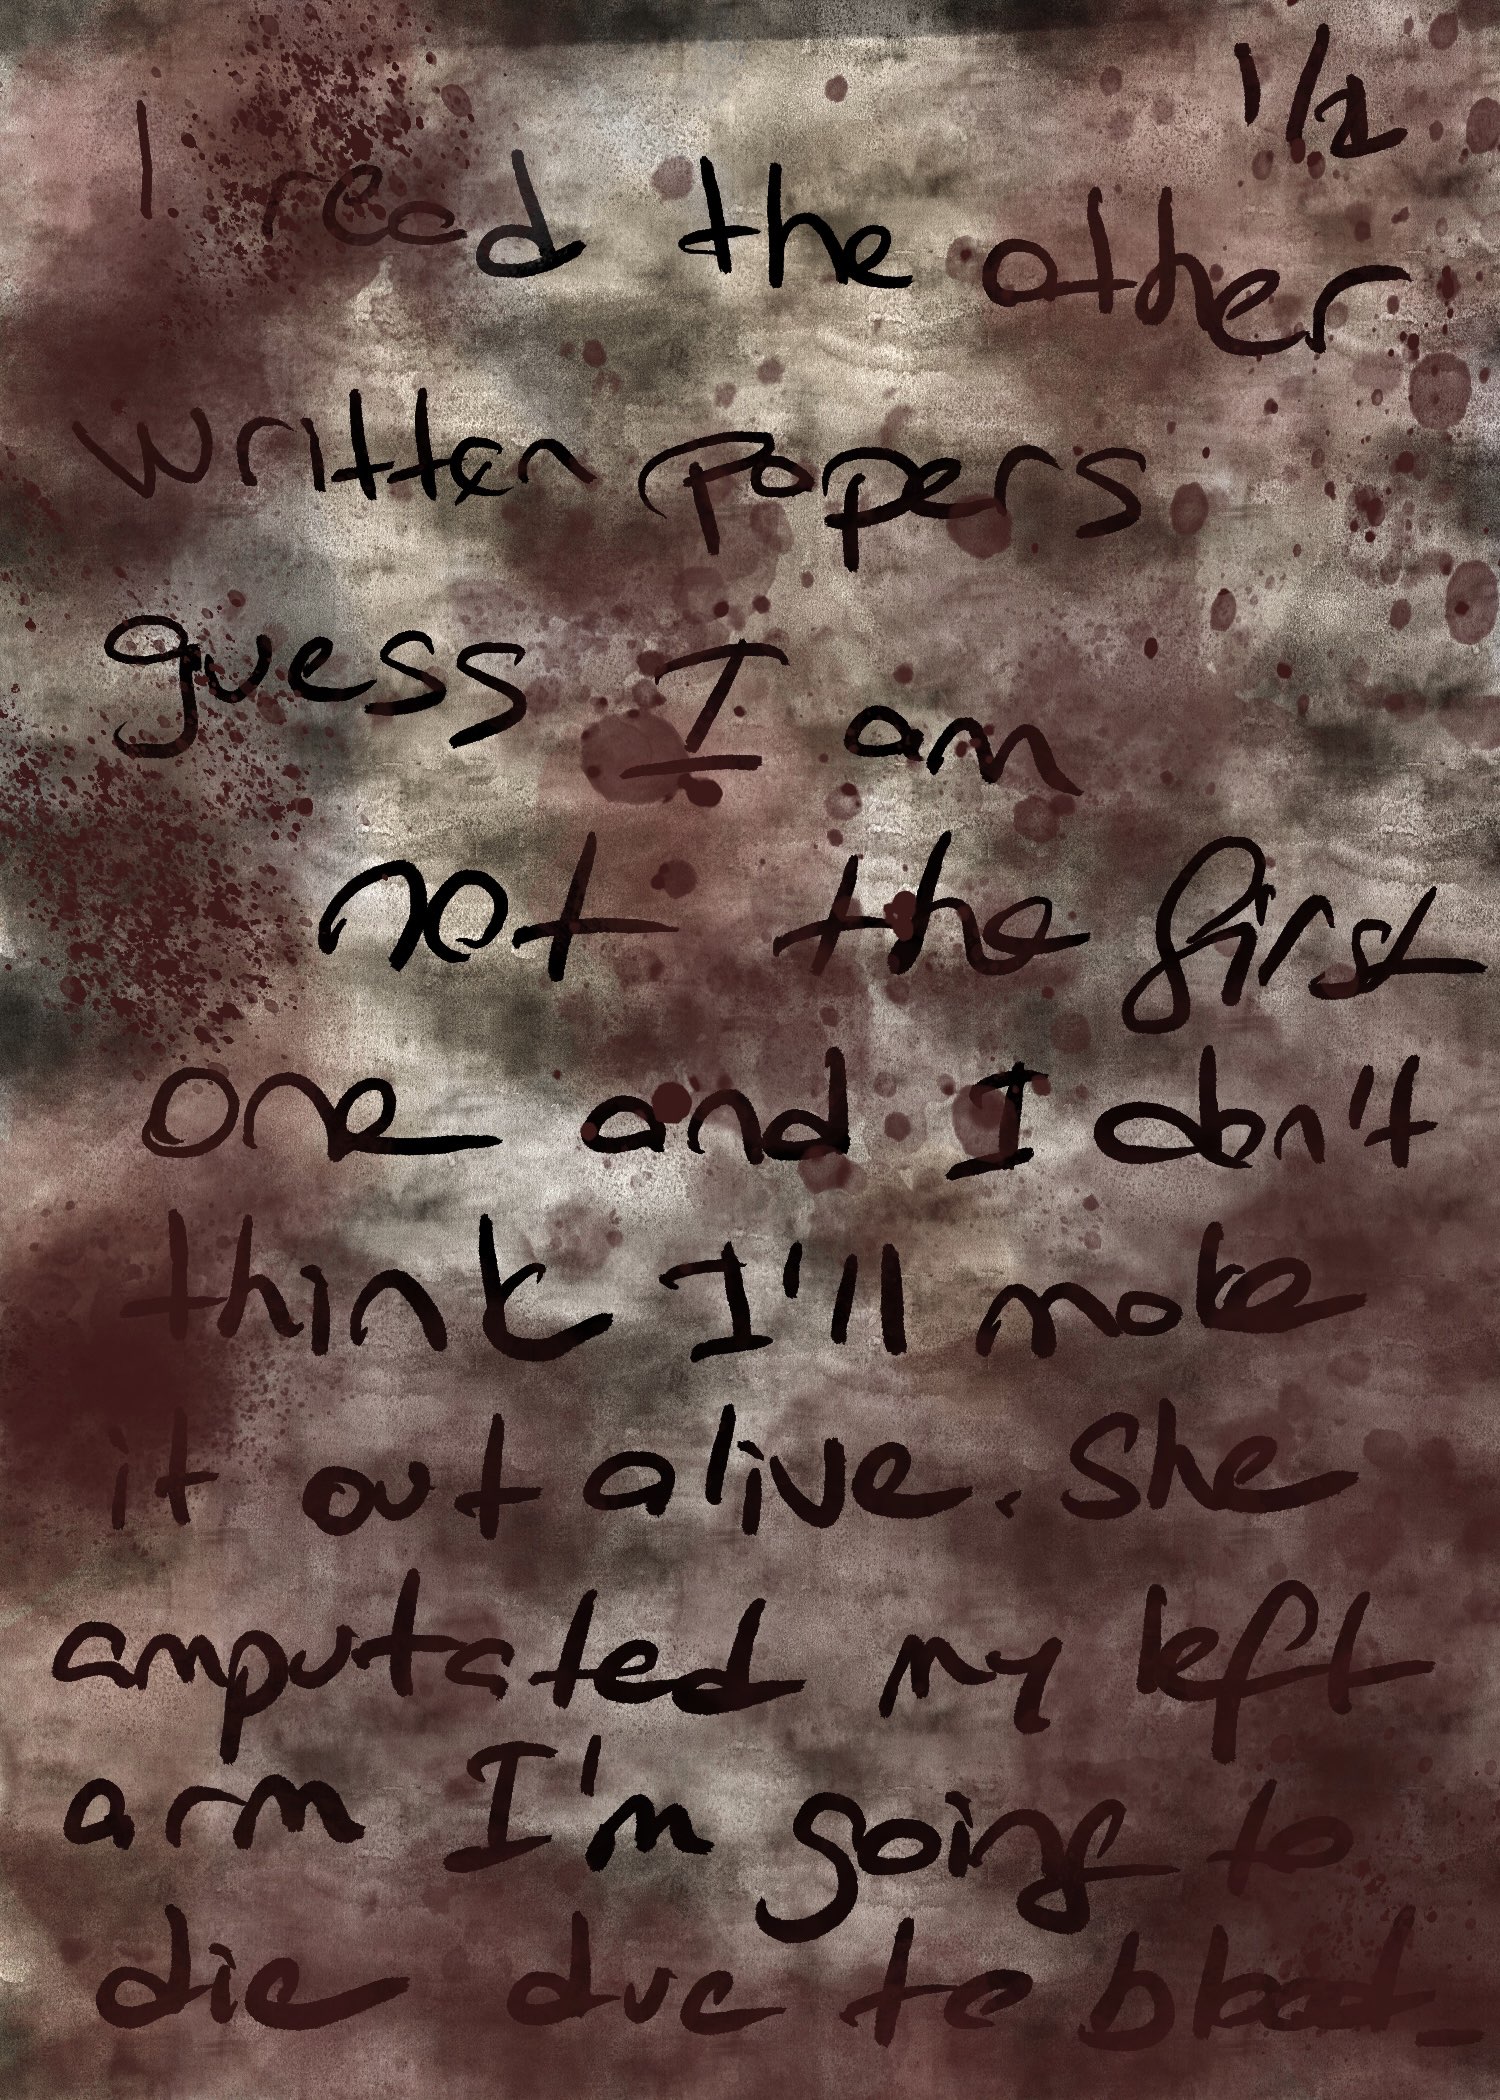 1/2
I read the other
written papers
guess I am
not the first
one and I don't
think I'll make
it out alive. She
amputated my left
arm I'm going to
die due to blood_